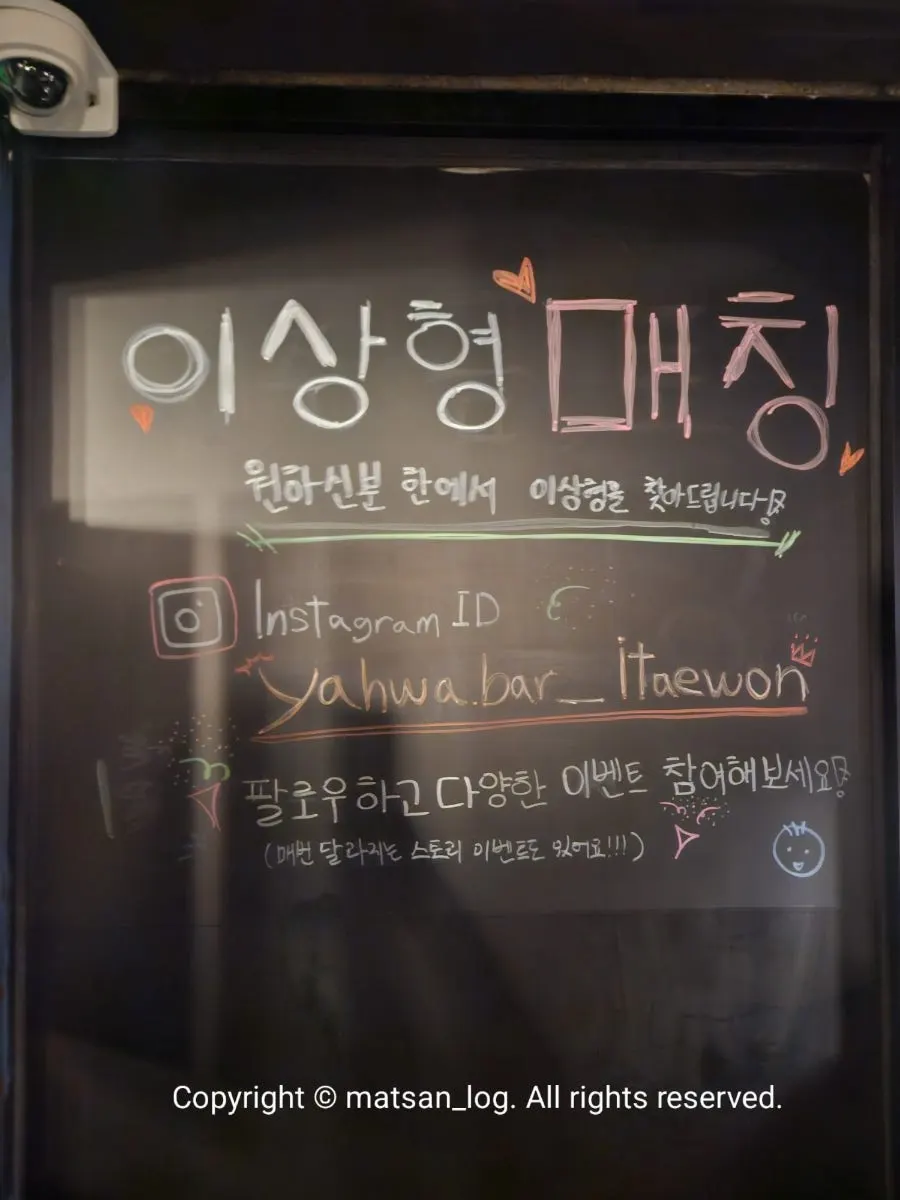 이상형 매칭
원하신분 한에서 이상형을 찾아드립니다!
Instagram ID
yahwa.bar_itaewon
팔로우하고 다양한 이벤트 참여해보세요!
(매번 달라지는 스토리 이벤트도 있어요!!!)
Copyright © matsan_log. All rights reserved.